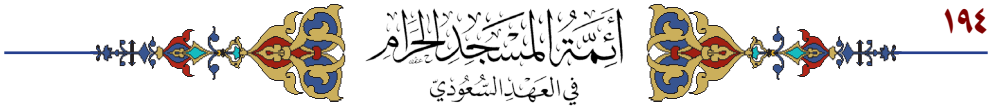 ١٩٤
أَئِمَّةُ المَسْجِدِ الحَرَامِ
في العَهْدِ السُّعُودِيّ